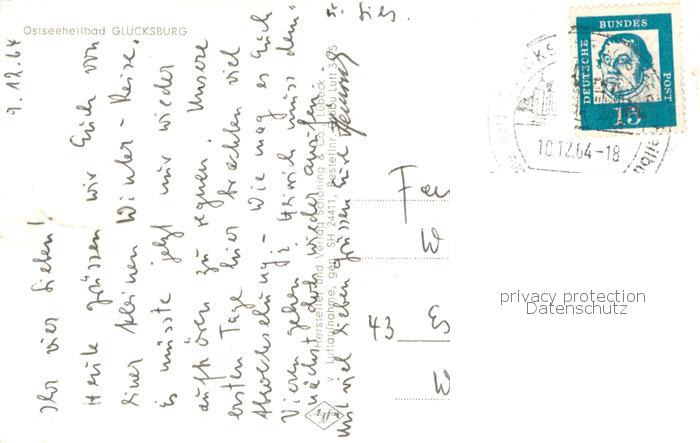 Ostseeheilbad GLÜCKSBURG
9.12.64
Ihr vier Lieben!
Heute grüssen wir Euch von
einer kleinen Winter-Reise.
Es müsste jetzt nur wieder
aufhören zu regnen. Unsere
ersten Tage hier brachten viel
Abwechselung; - Wie mag es Euch
Vieren gehen? Heinrich muss dem-
nächst doch wieder anrufen.
und viel lieben Grüssen Eure
Hersteller und Verlag Schöning & Co., Lübeck
Luftaufnahme, gen. SH 24411, Bestellnr. Luft 3975
DEUTSCHE BUNDES POST
15
10.12.64-18
Fa
W
43 Es
W
privacy protection
Datenschutz